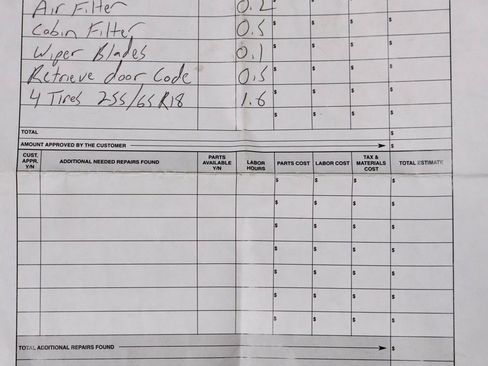 Air Filter 0.2 $ $ $ $
Cabin Filter 0.5 $ $ $ $
Wiper Blades 0.1 $ $ $ $
Retrieve door Code 0.5 $ $ $ $
4 Tires 255/65R18 1.6 $ $ $ $
$ $ $ $
TOTAL $
AMOUNT APPROVED BY THE CUSTOMER $
CUST. APPR. Y/N ADDITIONAL NEEDED REPAIRS FOUND PARTS AVAILABLE Y/N LABOR HOURS PARTS COST LABOR COST TAX & MATERIALS COST TOTAL ESTIMATE
$ $ $ $
$ $ $ $
$ $ $ $
$ $ $ $
$ $ $ $
$ $ $ $
$ $ $ $
TOTAL ADDITIONAL REPAIRS FOUND $